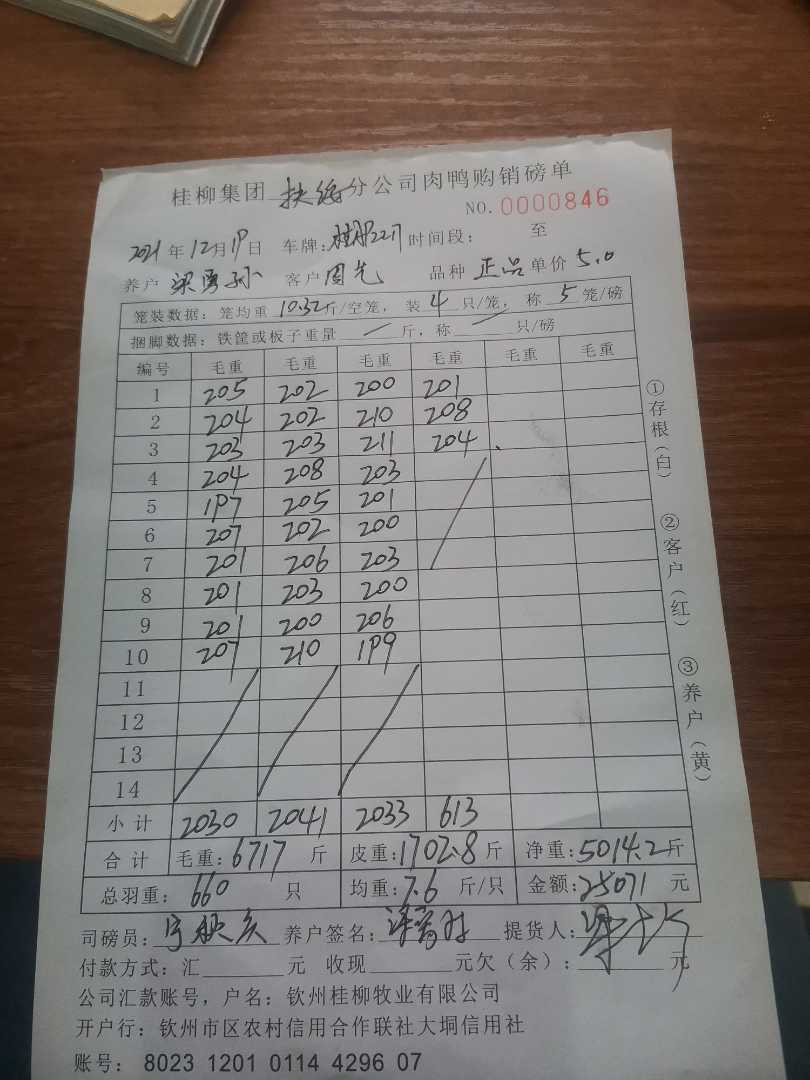 桂柳集团 扶绥 分公司肉鸭购销磅单
NO. 0000846
2021 年 12 月 19 日 车牌: 时间段: 至
养户 梁勇孙 客户 周先 品种 正品 单价 5.0
笼装数据: 笼均重 10.32 斤/空笼, 装 4 只/笼, 称 5 笼/磅
捆脚数据: 铁筐或板子重量 / 斤, 称 / 只/磅
编号 毛重 毛重 毛重 毛重 毛重 毛重
1 205 202 200 201
2 204 202 210 208
3 203 203 211 204
4 204 208 203
5 197 205 201
6 207 202 200
7 201 206 203
8 201 203 200
9 201 200 206
10 207 210 199
11
12
13
14
小计 2030 2041 2033 613
合计 毛重: 6717 斤 皮重: 1702.8 斤 净重: 5014.2 斤
总羽重: 660 只 均重: 7.6 斤/只 金额: 25071 元
司磅员: 养户签名: 提货人:
付款方式: 汇 元 收现 元欠(余): 元
公司汇款账号, 户名: 钦州桂柳牧业有限公司
开户行: 钦州市区农村信用合作联社大垌信用社
账号: 8023 1201 0114 4296 07
①存根(白)
②客户(红)
③养户(黄)